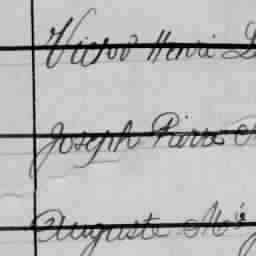 Victor Henri
Joseph Pierre
Auguste Mie